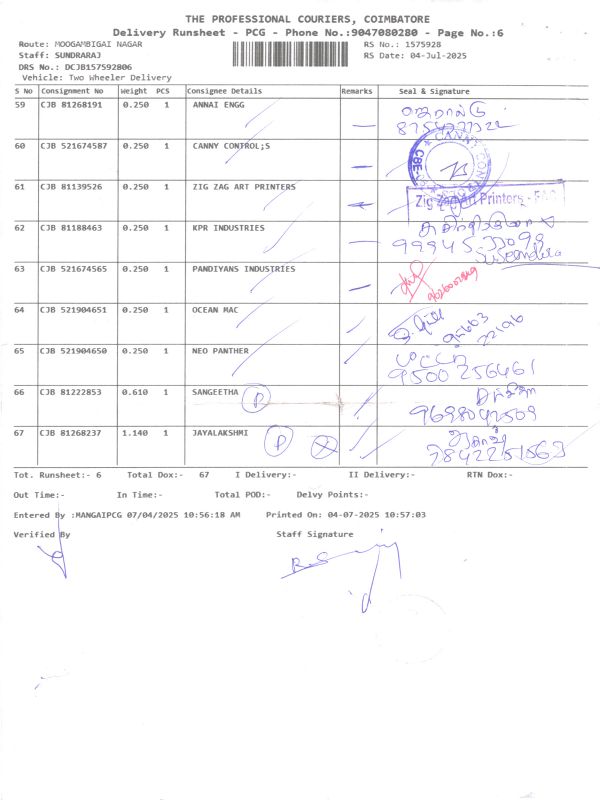 THE PROFESSIONAL COURIERS, COIMBATORE
Delivery Runsheet - PCG - Phone No.:9047080280 - Page No.:6
Route: MOOGAMBIGAI NAGAR RS No.: 1575928
Staff: SUNDRARAJ RS Date: 04-Jul-2025
DRS No.: DCJB157592806
Vehicle: Two Wheeler Delivery
S No Consignment No Weight PCS Consignee Details Remarks Seal & Signature
59 CJB 81268191 0.250 1 ANNAI ENGG
60 CJB 521674587 0.250 1 CANNY CONTROL;S
61 CJB 81139526 0.250 1 ZIG ZAG ART PRINTERS
Zig Zag Art Printers
62 CJB 81188463 0.250 1 KPR INDUSTRIES
63 CJB 521674565 0.250 1 PANDIYANS INDUSTRIES
64 CJB 521904651 0.250 1 OCEAN MAC
65 CJB 521904650 0.250 1 NEO PANTHER
9500 256461
66 CJB 81222853 0.610 1 SANGEETHA P
67 CJB 81268237 1.140 1 JAYALAKSHMI P
Tot. Runsheet:- 6 Total Dox:- 67 I Delivery:- II Delivery:- RTN Dox:-
Out Time:- In Time:- Total POD:- Delvy Points:-
Entered By :MANGAIPCG 07/04/2025 10:56:18 AM Printed On: 04-07-2025 10:57:03
Verified By Staff Signature